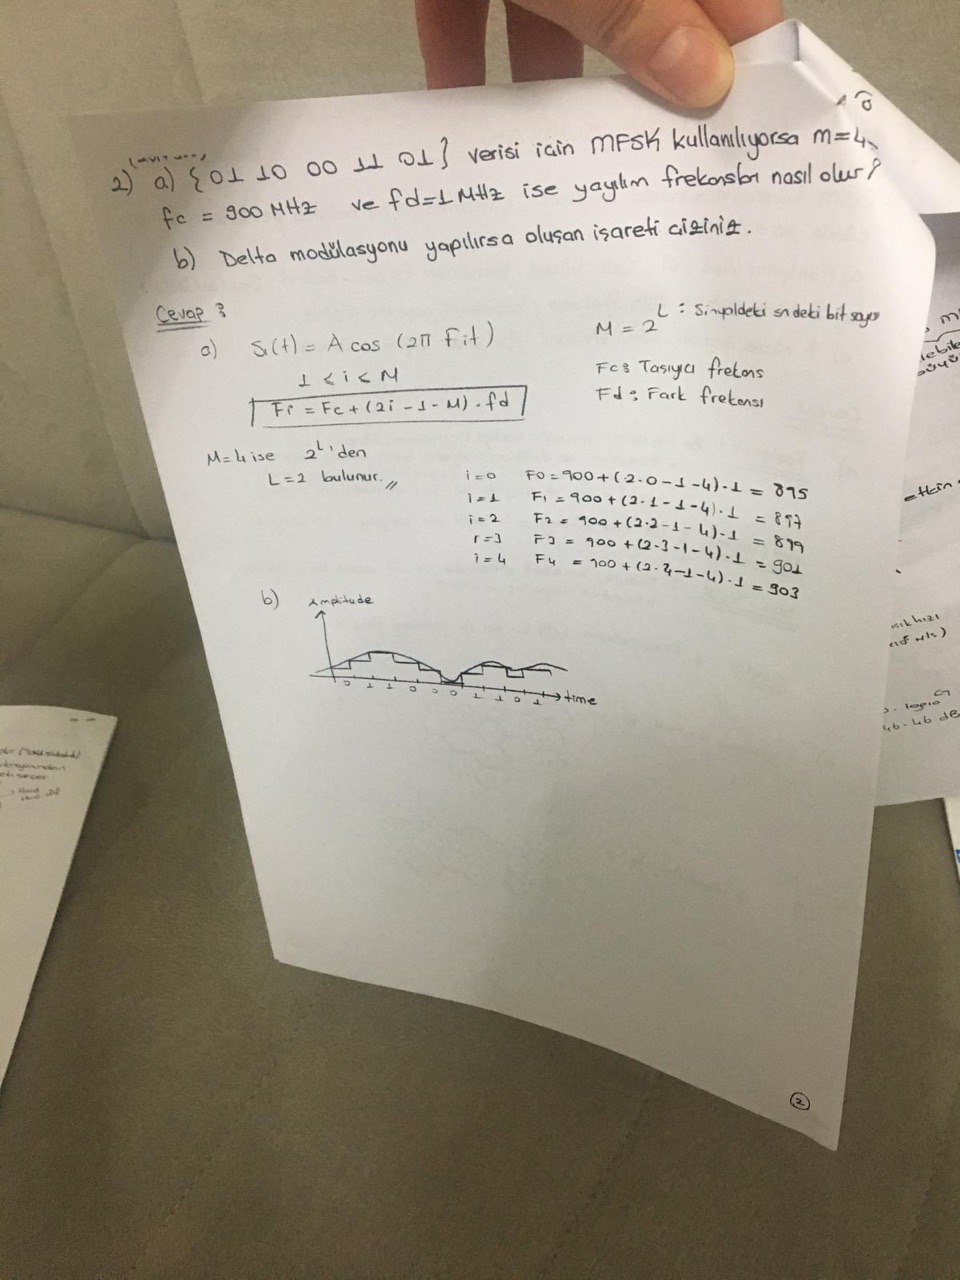 2) a) {01 10 00 11 01} verisi icin MFSK kullanılıyorsa m=4,
fc = 900 MHz ve fd=1 MHz ise yayılım frekansları nasıl olur?
b) Delta modülasyonu yapılırsa oluşan işareti ciziniz.
Cevap :
a) Si(t) = A cos (2π Fit)
1 < i < M
Fi = Fc + (2i - 1 - M) . fd
M = 2^L L : Sinyaldeki bit sayısı
Fc : Taşıyıcı frekans
Fd : Fark frekansı
M=4 ise 2^L 'den
L=2 bulunur.
i=0 F0 = 900 + (2.0-1-4).1 = 895
i=1 F1 = 900 + (2.1-1-4).1 = 897
i=2 F2 = 900 + (2.2-1-4).1 = 899
i=3 F3 = 900 + (2.3-1-4).1 = 901
i=4 F4 = 900 + (2.4-1-4).1 = 903
b) Amplitude
0 1 1 0 0 0 1 1 0 1 time
2